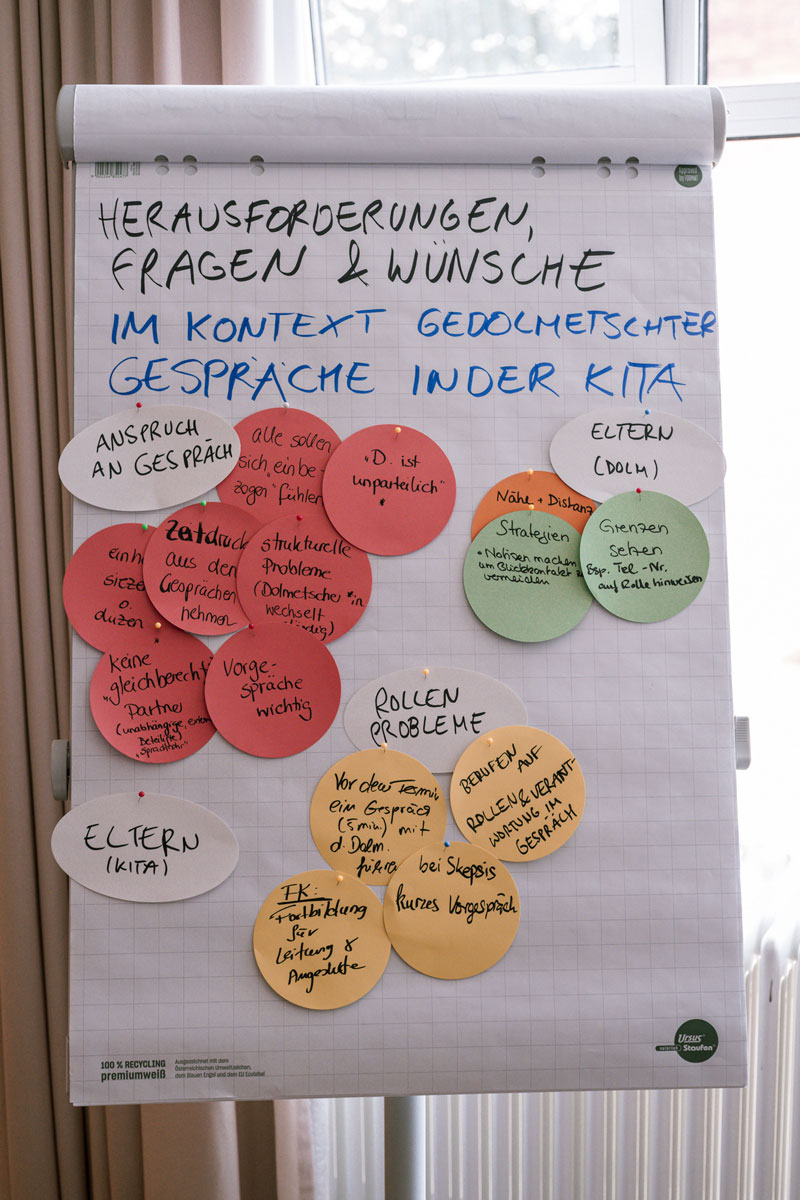 HERAUSFORDERUNGEN,
FRAGEN & WÜNSCHE
IM KONTEXT GEDOLMETSCHTER
GESPRÄCHE IN DER KITA
ANSPRUCH
AN GESPRÄCH
alle sollen
sich "einbe-
zogen" fühlen
"D. ist
unparteilich"
*
einh
siezen
o.
duzen
Zeitdruck
aus den
Gesprächen
nehmen
strukturelle
Probleme
(Dolmetscher*in
wechselt
keine
"gleichberecht
Partner
(unabhängige,
Beteiligte)
"Sprachrohr"
Vorge-
spräche
wichtig
ELTERN
(DOLM)
Nähe + Distanz
Strategien
• Notizen machen
um Blickkontakt z
vermeiden
Grenzen
setzen
Bsp. Tel.-Nr.
auf Rolle hinweisen
ROLLEN
PROBLEME
Vor dem Termin
ein Gespräch
(5 min.) mit
d. Dolm.
führen
BERUFEN AUF
ROLLEN & VERANT-
WORTUNG IM
GESPRÄCH
FK:
Fortbildung
für
Leitung &
Angestellte
bei Skepsis
kurzes Vorgespräch
ELTERN
(KITA)
100 % RECYCLING
premiumweiß
Ausgezeichnet mit dem
Österreichischen Umweltzeichen,
dem Blauen Engel und dem EU Ecolabel
Ursus
Staufen